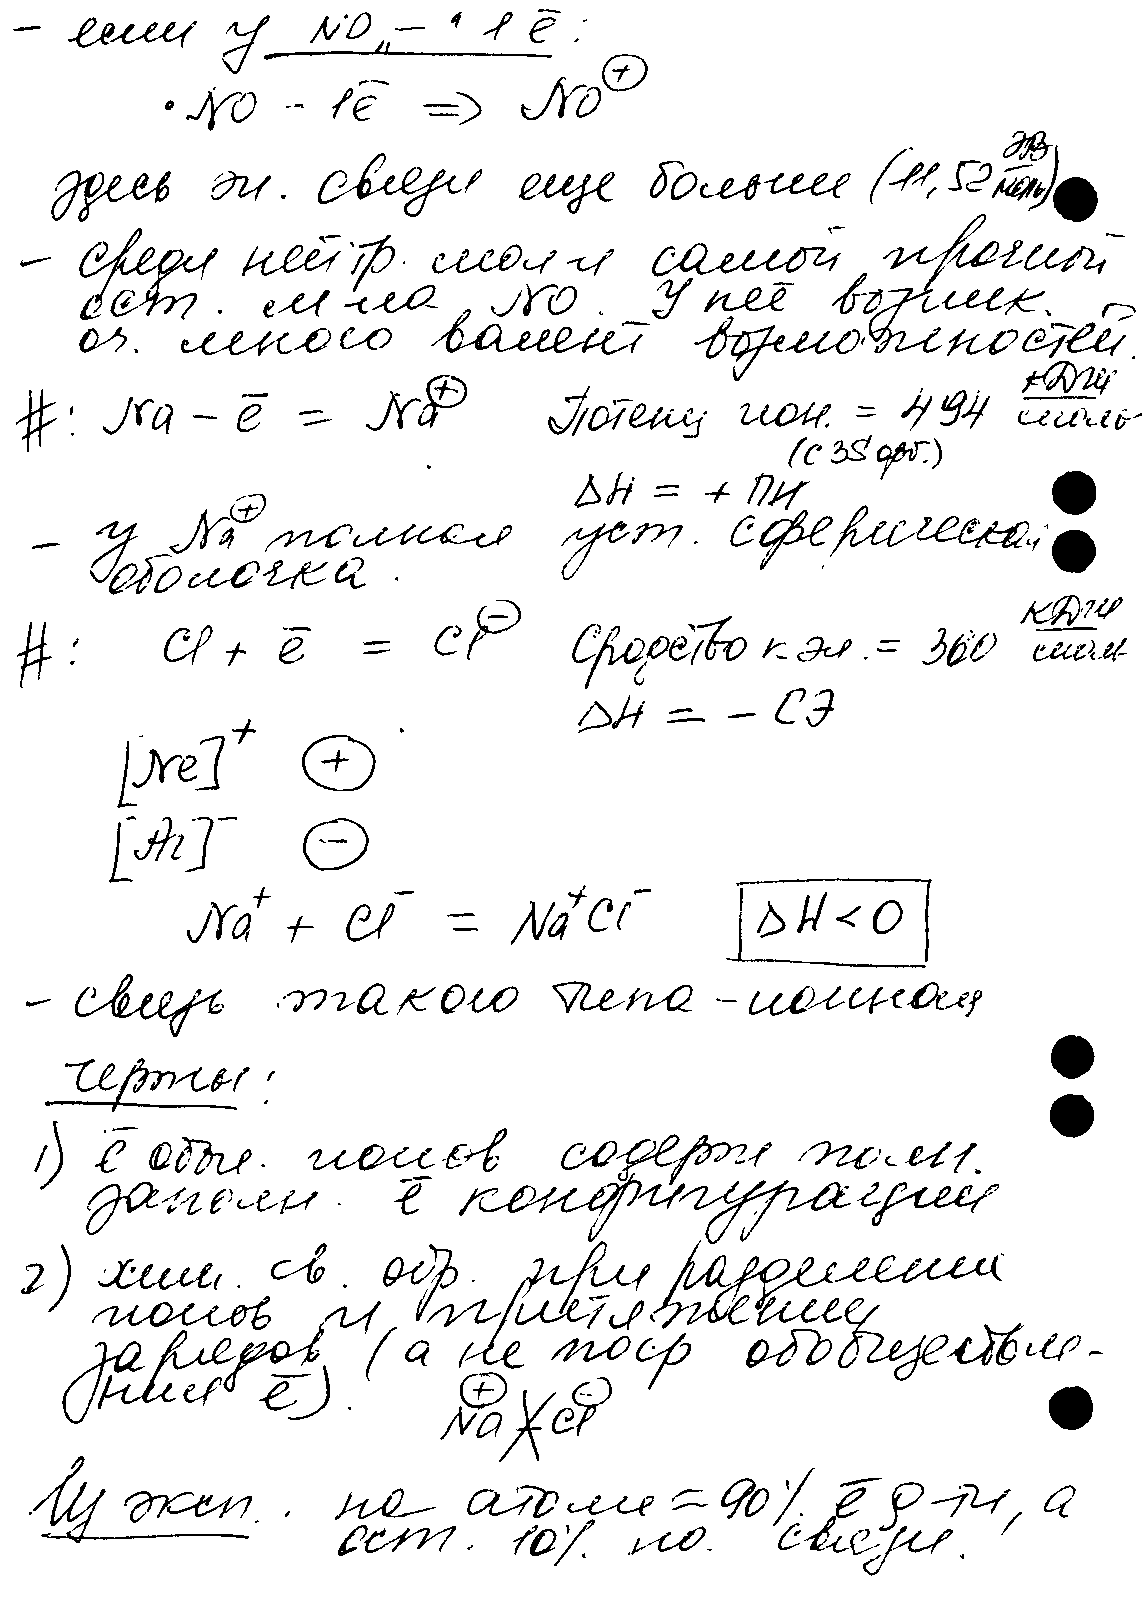 - если у NO „-" 1ē:
·NO - 1ē => NO⊕
здесь эн. связи еще больше (11,52 эВ/моль)
- среди нейтр. мол-л самой прочной
ост. м-ла NO. У неё возник.
оч. много валент возможностей.
#: Na - ē = Na⊕ Потенц ион. = 494 кДж/моль
(с 3S орб.)
ΔH = + ПИ
- у Na⊕ полная уст. сферическая
оболочка.
#: Cl + ē = Cl⊖ Сродство к эл. = 360 кДж/моль
ΔH = - СЭ
[Ne]⁺ ⊕
[Ar]⁻ ⊖
Na⁺ + Cl⁻ = Na⁺Cl⁻ ΔH<0
- связь такого типа - ионная
Черты:
1) ē обол. ионов содерж полн.
заполн. ē конфигурации
2) хим. св. обр. при разделении
ионов и притяжении
зарядов (а не поср обобществле-
ния ē). Na⊕-Cl⊖
Из эксп. на атоме = 90% ē ρ-ти, а
ост. 10% на связи.